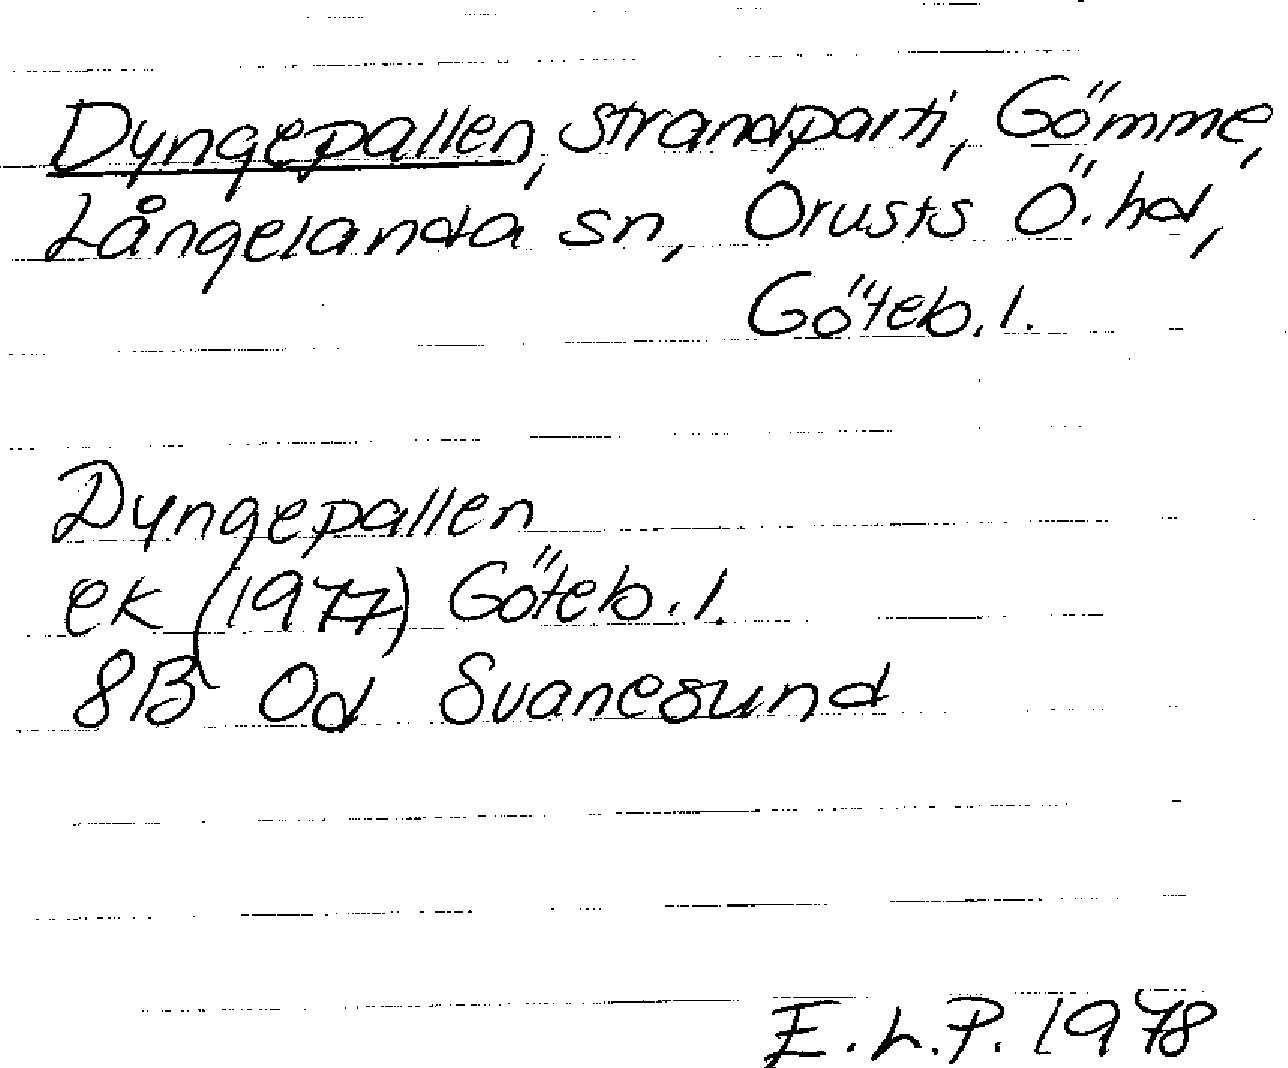 Dyngepallen, strandparti, Gömme,
Långelanda sn, Orusts Ö. hd,
Göteb. l.
Dyngepallen
ek (1977) Göteb. l.
8B 0d Svanesund
E. L. P. 1978